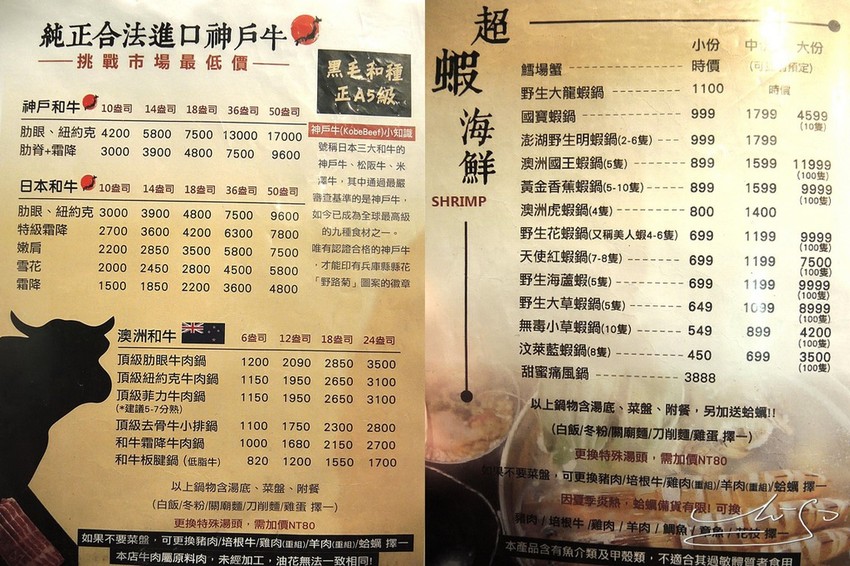 純正合法進口神戶牛
挑戰市場最低價
黑毛和種
正A5級
神戶和牛 10盎司 14盎司 18盎司 36盎司 50盎司
肋眼、紐約克 4200 5800 7500 13000 17000
肋脊+霜降 3000 3900 4800 7500 9600
日本和牛 10盎司 14盎司 18盎司 36盎司 50盎司
肋眼、紐約克 3000 3900 4800 7500 9600
特級霜降 2700 3600 4200 6300 7800
嫩肩 2200 2850 3500 5800 7500
雪花 2000 2450 2800 4500 5800
霜降 1500 1850 2200 3600 4800
神戶牛(KobeBeef)小知識
號稱日本三大和牛的
神戶牛、松阪牛、米
澤牛，其中通過最嚴
審查基準的是神戶牛，
如今已成為全球最高級
的九種食材之一。
唯有認證合格的神戶牛
，才能印有兵庫縣縣花
「野路菊」圖案的徽章
澳洲和牛 6盎司 12盎司 18盎司 24盎司
頂級肋眼牛肉鍋 1200 2090 2850 3500
頂級紐約克牛肉鍋 1150 1950 2650 3100
頂級菲力牛肉鍋 1150 1950 2650 3100
(*建議5-7分熟)
頂級去骨牛小排鍋 1100 1750 2300 2800
和牛霜降牛肉鍋 1000 1680 2150 2700
和牛板腱鍋 (低脂牛) 820 1200 1550 1700
以上鍋物含湯底、菜盤、附餐
(白飯/冬粉/關廟麵/刀削麵/雞蛋 擇一)
更換特殊湯頭，需加價NT80
如果不要菜盤，可更換豬肉/培根牛/雞肉(重組)/羊肉(重組)/蛤蠣 擇一
本店牛肉屬原料肉，未經加工，油花無法一致相同!
超蝦海鮮
SHRIMP
小份 中份 大份
鱈場蟹 時價
野生大龍蝦鍋 1100 時價
國寶蝦鍋 999 1799 4599
(10隻)
澎湖野生明蝦鍋(2-6隻) 999 1799
澳洲國王蝦鍋(5隻) 899 1599 11999
(100隻)
黃金香蕉蝦鍋(5-10隻) 899 1599 9999
(100隻)
澳洲虎蝦鍋(4隻) 800 1400
野生花蝦鍋(又稱美人蝦4-6隻) 699 1199 9999
(100隻)
天使紅蝦鍋(7-8隻) 699 1199 7500
(100隻)
野生海蘆蝦(5隻) 699 1199 9999
(100隻)
野生大草蝦鍋(5隻) 649 1099 8999
(100隻)
無毒小草蝦鍋(10隻) 549 899 4200
(100隻)
汶萊藍蝦鍋(8隻) 450 699 3500
(100隻)
甜蜜痛風鍋 3888
以上鍋物含湯底、菜盤、附餐，另加送蛤蠣!!
(白飯/冬粉/關廟麵/刀削麵/雞蛋 擇一)
更換特殊湯頭，需加價NT80
如果不要菜盤，可更換豬肉/培根牛/雞肉(重組)/羊肉(重組)/蛤蠣 擇一
因夏季炎熱，蛤蠣備貨有限! 可換
豬肉/培根牛/雞肉/羊肉/鯛魚/章魚/花枝 擇一
本產品含有魚介類及甲殼類，不適合其過敏體質者食用